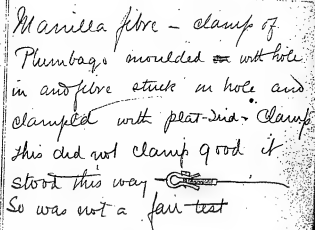 Manilla fibre – clamp of
Plumbago moulded with hole
in and fibre stuck in hole and
clamped with plat-Irid- Clamp
this did not clamp good it
stood this way
So was not a fair test